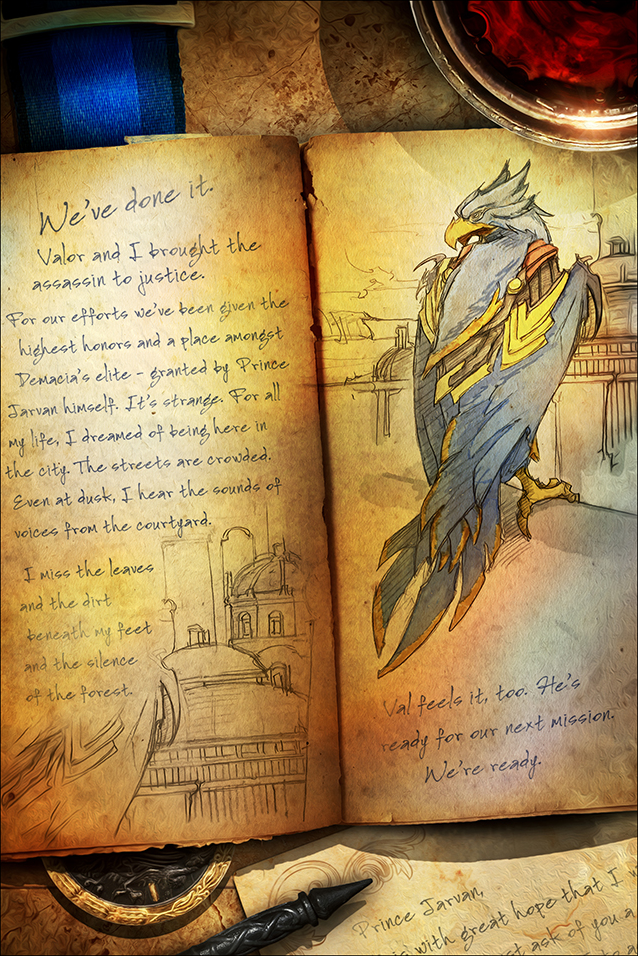 We've done it.
Valor and I brought the
assassin to justice.
For our efforts we've been given the
highest honors and a place amongst
Demacia's elite - granted by Prince
Jarvan himself. It's strange. For all
my life, I dreamed of being here in
the city. The streets are crowded.
Even at dusk, I hear the sounds of
voices from the courtyard.
I miss the leaves
and the dirt
beneath my feet
and the silence
of the forest.
Val feels it, too. He's
ready for our next mission.
We're ready.
Prince Jarvan,
is with great hope that I
ask of you a